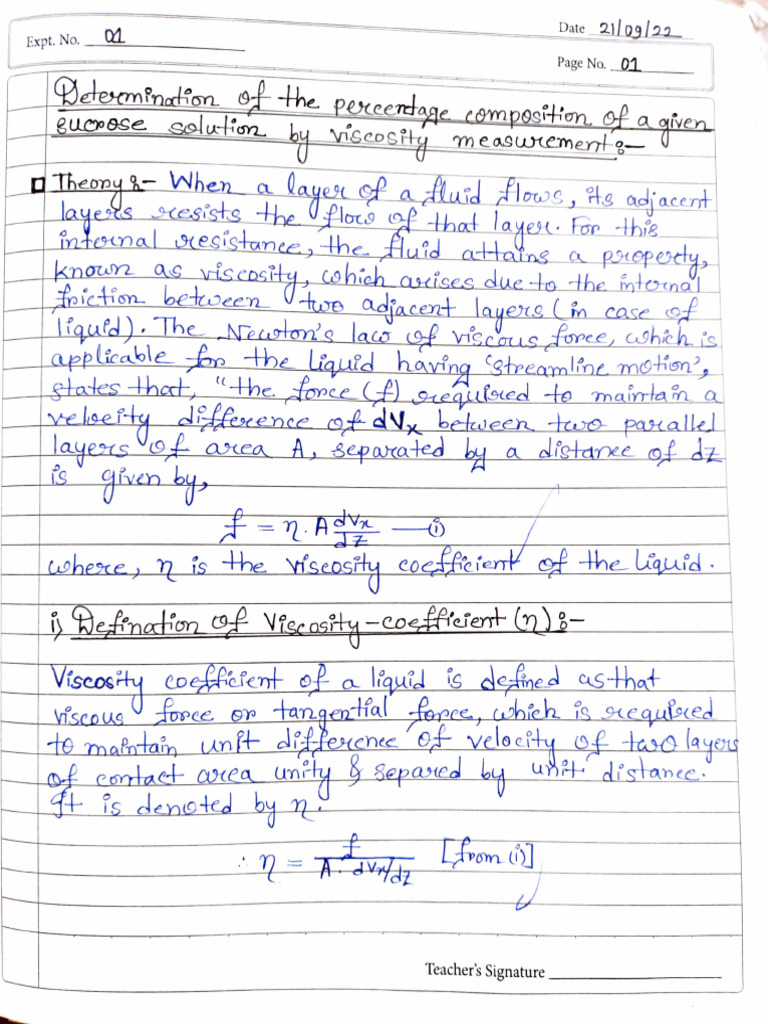 Expt. No. 01
Date 21/09/22
Page No. 01
Determination of the percentage composition of a given
sucrose solution by viscosity measurement:-
Theory:- When a layer of a fluid flows, its adjacent
layers resists the flow of that layer. For this
internal resistance, the fluid attains a property,
known as viscosity, which arises due to the internal
friction between two adjacent layers (in case of
liquid). The Newton's law of viscous force, which is
applicable for the liquid having 'streamline motion',
states that, "the force (f) required to maintain a
velocity difference of dVx between two parallel
layers of area A, separated by a distance of dz
is given by,
f = η. A dVx/dz — (i)
where, η is the viscosity coefficient of the liquid.
i) Defination of Viscosity-coefficient (η):-
Viscosity coefficient of a liquid is defined as that
viscous force or tangential force, which is required
to maintain unit difference of velocity of two layers
of contact area unity & separed by unit distance.
It is denoted by η.
∴ η = f / A. dVx/dz [from (i)]
Teacher's Signature